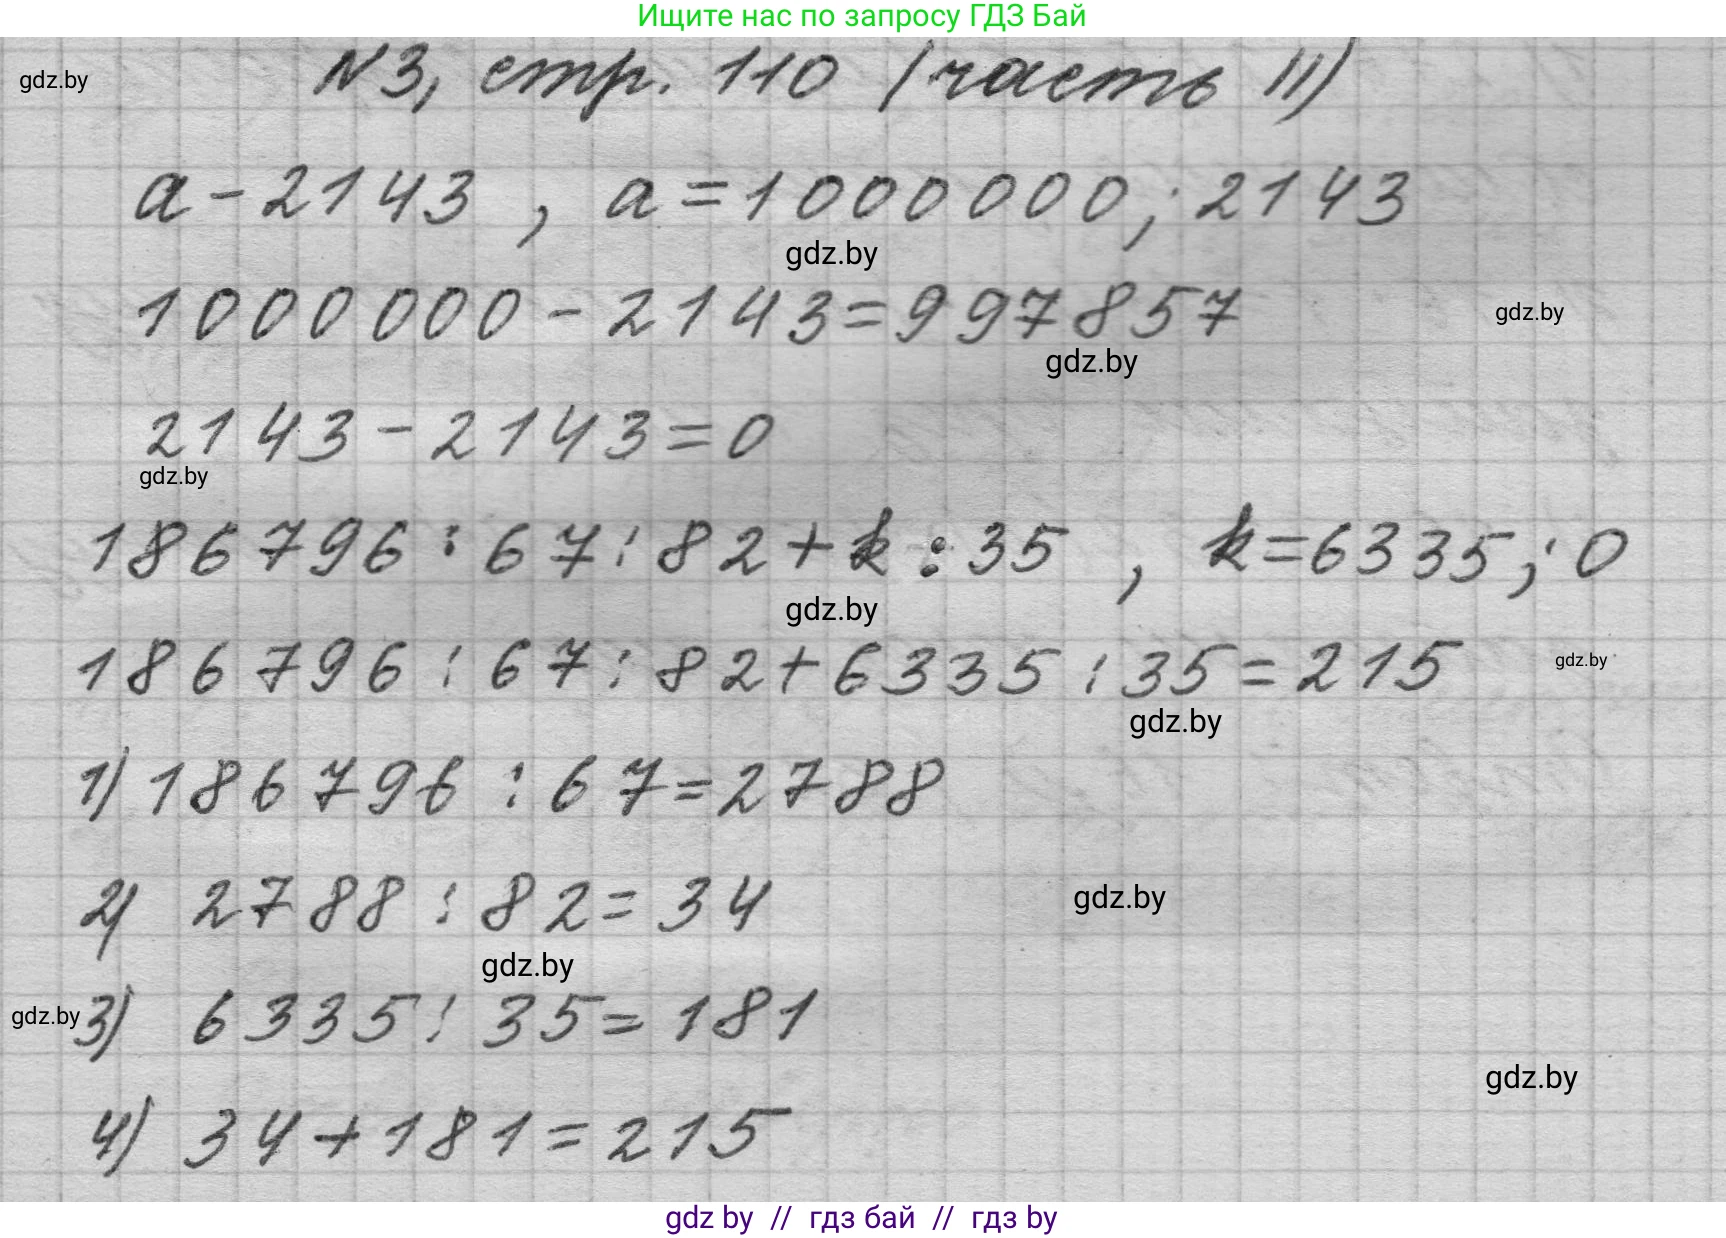 Ищите нас по запросу ГДЗ Бай
gdz.by
N3, стр. 110 (часть II)
a - 2143 , a = 1000000; 2143
gdz.by
1000000 - 2143 = 997857
gdz.by
gdz.by
2143 - 2143 = 0
gdz.by
186796 : 67 : 82 + k : 35 , k = 6335; 0
gdz.by
186796 : 67 : 82 + 6335 : 35 = 215
gdz.by
gdz.by
1) 186796 : 67 = 2788
2) 2788 : 82 = 34
gdz.by
gdz.by
gdz.by
3) 6335 : 35 = 181
gdz.by
4) 34 + 181 = 215
gdz by // гдз бай // гдз by